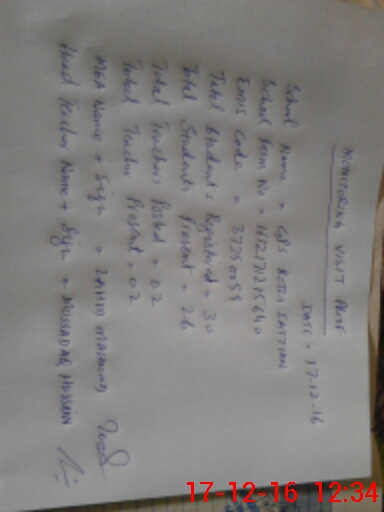 MONITORING VISIT PROOF
DATE = 17-12-16
School Name = GPS KOTLI SATTIAN
School Form No =
EMIS Code = 37350059
Total Students Registered = 30
Total Students Present = 26
Total Teachers Posted = 02
Total Teacher Present = 02
MEA Name + Sign = ZAHID MAHMOOD
Head Teacher Name + Sign = MUSSADAQ HUSSAIN
17-12-16 12:34